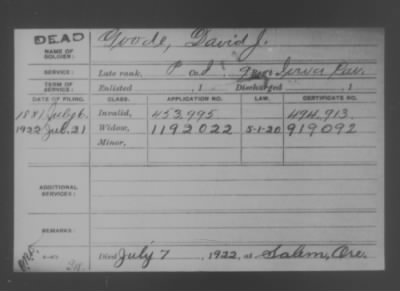 DEAD
Goode, David J.
NAME OF SOLDIER:
SERVICE: Late rank, P Co. I, 9 Iowa Cav.
TERM OF SERVICE: Enlisted , 1 Discharged , 1
DATE OF FILING. CLASS. APPLICATION NO. LAW. CERTIFICATE NO.
1881 July 6. Invalid, 453.995 494.913.
1922 Jul. 21 Widow, 1192022 5-1-20 919092
Minor,
ADDITIONAL SERVICES:
REMARKS:
Died July 7, 1922, at Salem, Ore.